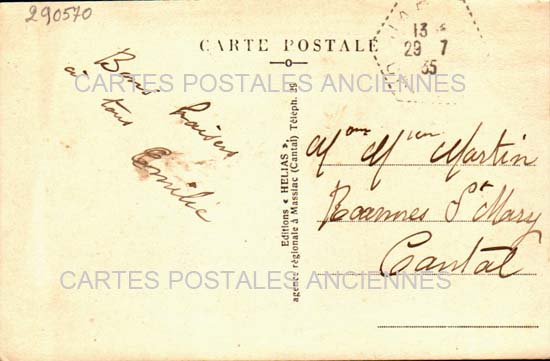 290570
CARTE POSTALE
13
29 7
35
Bons baisers
à tous
Emilie
Editions « HELIAS »,
agence régionale à Massiac (Cantal) Téléph. 29
Mme Mr Martin
Roannes St Mary
Cantal
CARTES POSTALES ANCIENNES
CARTES POSTALES ANCIENNES